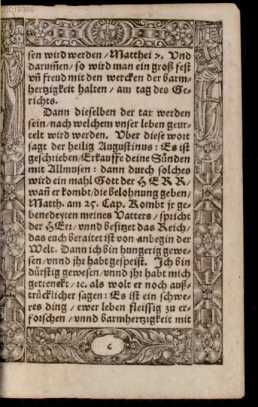 sen wird werden / Matthei 7. Vnd
darumen / so wird man ein groß fest
vñ freud mit den wercken der barm-
hertzigkeit halten / am tag des Ge-
richts.
Dann dieselben der tax werden
sein / nach welchem vnser leben geur-
telt wird werden. Vber diese wort
sagt der heilig Augustinus: Es ist
geschrieben / Erkauffe deine Sünden
mit Allmusen: dann durch solches
wird ein mahl Gott der HERR /
wañ er kombt / die belohnung geben /
Matth. am 25. Cap. Kombt jr ge-
benedeyten meines Vatters / spricht
der HErr / vnnd besitzet das Reich /
das euch beraitet ist von anbegin der
Welt. Dann ich bin hungerig gewe-
sen / vnnd jhr habt gespeist. Ich bin
dürstig gewesen / vnnd jhr habt mich
getrenckt / ꝛc. als wolt er noch auß-
trücklicher sagen: Es ist ein schwe-
res ding / ewer leben fleissig zu er-
forschen / vnnd barmhertzigkeit mit